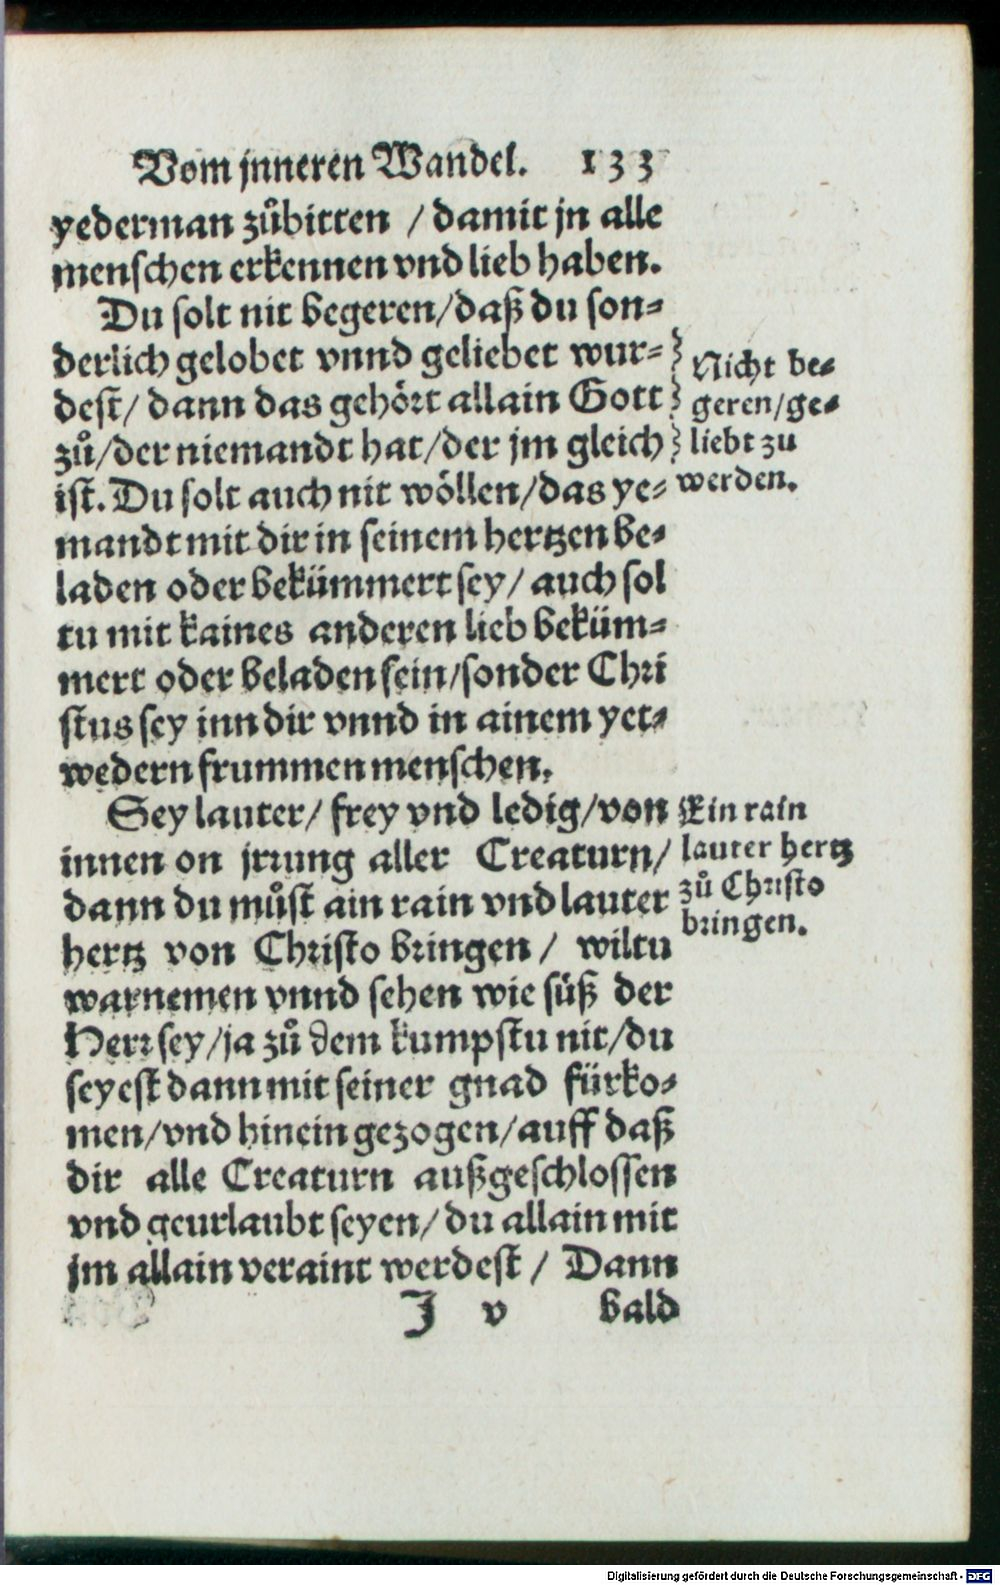 Vom jnneren Wandel. 133
yederman zůbitten / damit jn alle
menschen erkennen vnd lieb haben.
Du solt nit begeren/daß du son=
derlich gelobet vnnd geliebet wur=
dest/ dann das gehört allain Gott
zů/der niemandt hat/der jm gleich
ist. Du solt auch nit wöllen/das ye=
mandt mit dir in seinem hertzen be=
laden oder bekümmert sey/ auch sol
tu mit kaines anderen lieb beküm=
mert oder beladen sein/sonder Chri
stus sey inn dir vnnd in ainem yet=
wedern frummen menschen.
Nicht be=
geren/ge=
liebt zu
werden.
Sey lauter/ frey vnd ledig/von
innen on jrrung aller Creaturn/
dann du můst ain rain vnd lauter
hertz von Christo bringen / wiltu
warnemen vnnd sehen wie süß der
Herr sey/ja zů dem kumpstu nit/du
seyest dann mit seiner gnad fürko=
men/vnd hinein gezogen/auff daß
dir alle Creaturn außgeschlossen
vnd geurlaubt seyen/du allain mit
jm allain veraint werdest / Dann
Ein rain
lauter hertz
zů Christo
bringen.
J v bald
Digitalisierung gefördert durch die Deutsche Forschungsgemeinschaft - DFG